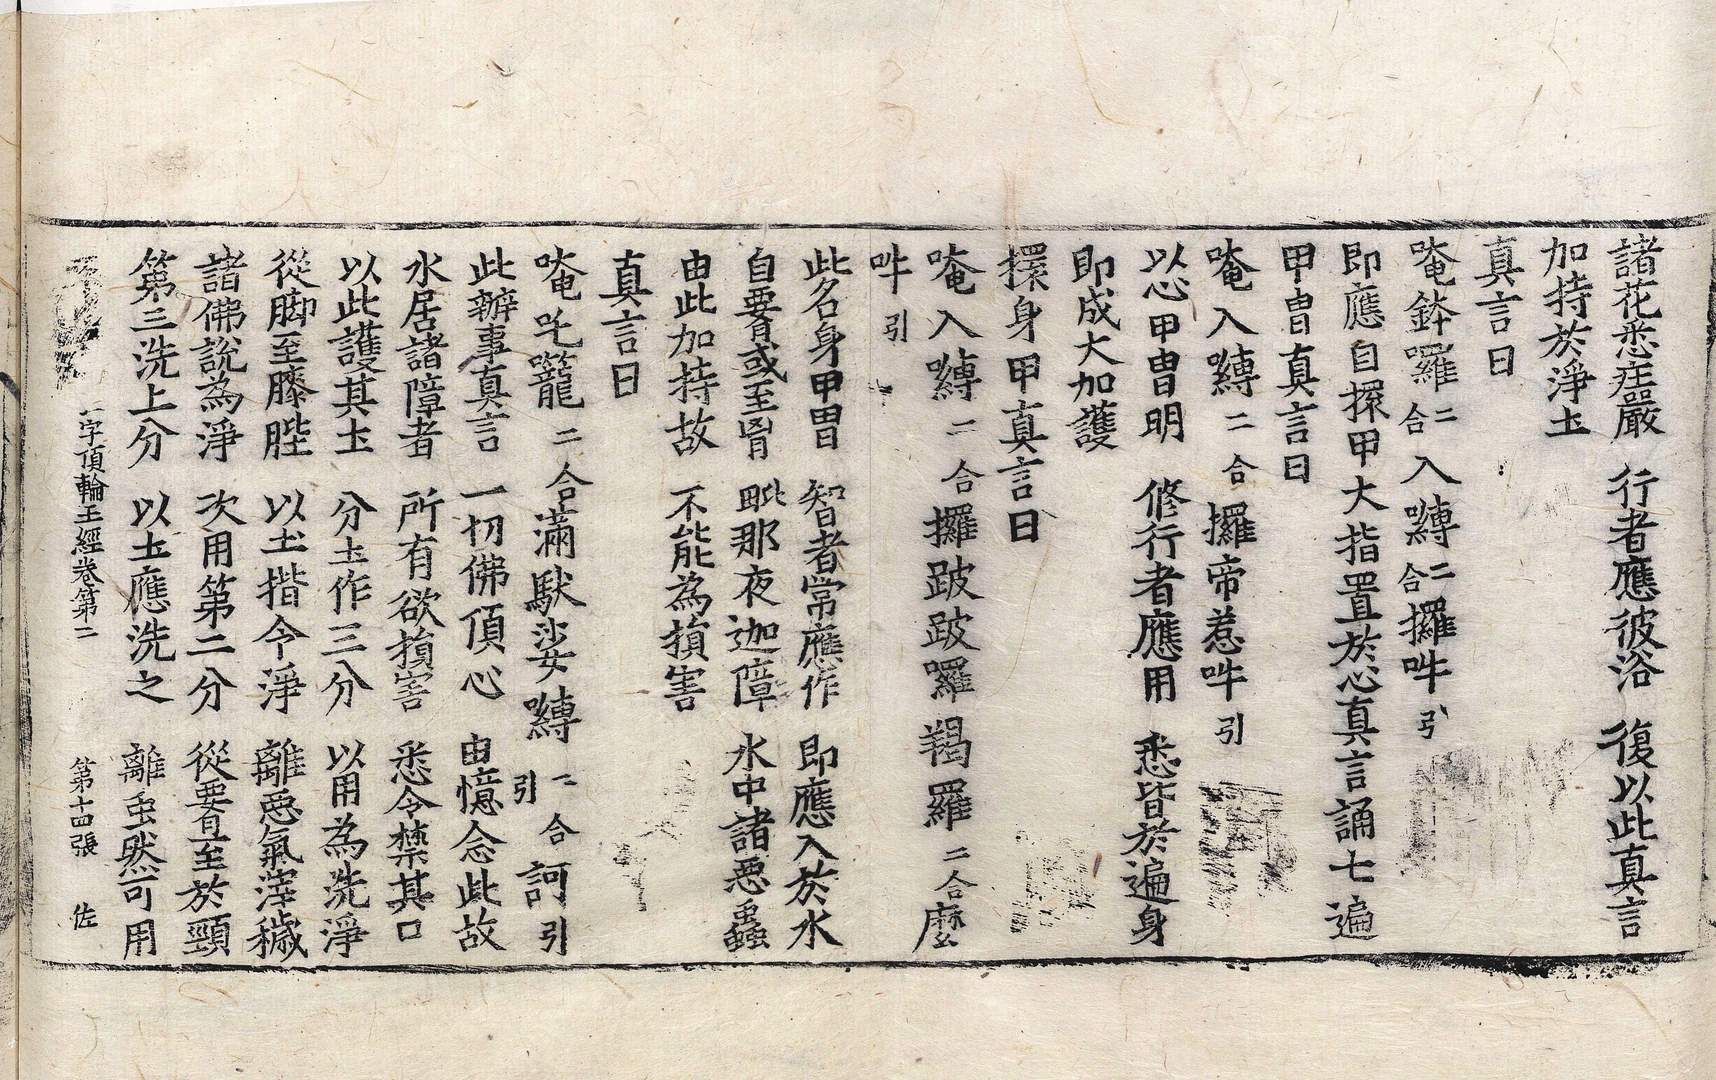 諸花悉庄嚴　行者應彼浴　復以此真言
加持於淨土
真言曰
唵鉢囉二合入嚩二合攞吽引
即應自擐甲大指置於心真言誦七遍
甲冑真言曰
唵入嚩二合攞帝惹吽引
以心甲冑明　修行者應用　悉皆於遍身
即成大加護
擐身甲真言曰
唵入嚩二合攞跛跛囉羯囉二合麼
吽引
此名身甲冑　智者常應作　即應入於水
自要或至𦚾　毗那夜迦障　水中諸惡蟲
由此加持故　不能為損害
真言曰
唵吒籠二合滿馱娑嚩二合引訶引
此辦事真言　一切佛頂心　由憶念此故
水居諸障者　所有欲損害　悉令禁其口
以此護其土　分土作三分　以用為洗淨
從脚至膝䏶　以土揩令淨　離惡氣滓穢
諸佛說為淨　次用第二分　從要至於頸
第三洗上分　以土應洗之　離虫然可用
一字頂輪王經卷第二　第十四張　佐